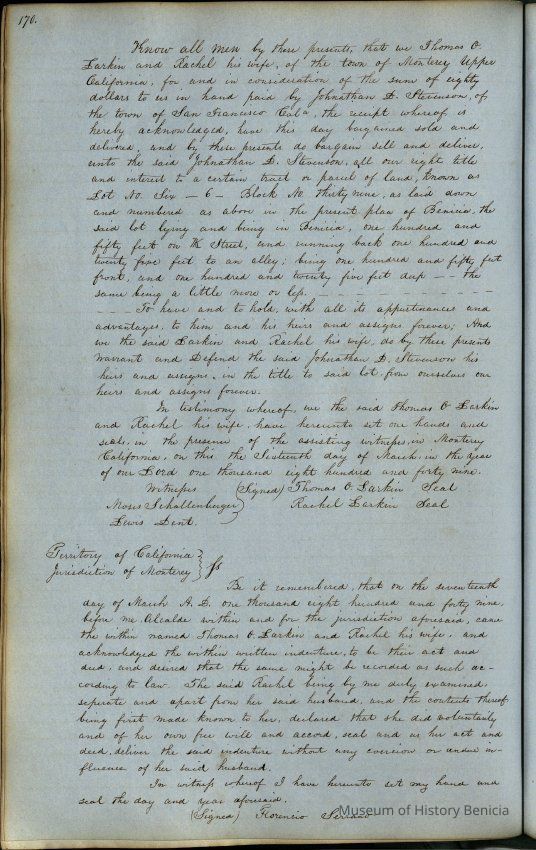 170.
Know all men by these presents, that we Thomas O.
Larkin and Rachel his wife, of the town of Monterey Upper
California, for and in consideration of the sum of eighty
dollars to us in hand paid by Johnathan D. Stevenson, of
the town of San Francisco Cala, the receipt whereof is
hereby acknowledged, have this day bargained sold and
delivered, and by these presents do bargain sell and deliver,
unto the said Johnathan D. Stevenson, all our right title
and interest to a certain tract or parcel of land, known as
Lot No. Six — 6 — Block No. thirty nine, as laid down
and numbered as above in the present plan of Benicia, the
said lot lying and being in Benicia, one hundred and
fifty feet on K Street, and running back one hundred and
twenty five feet to an alley; being one hundred and fifty feet
front, and one hundred and twenty five feet deep — the
same being a little more or less.
To have and to hold, with all its appurtenances and
advantages, to him and his heirs and assigns, forever; And
we the said Larkin and Rachel his wife, do by these presents
warrant and Defend the said Johnathan D. Stevenson his
heirs and assigns, in the title to said lot, from ourselves our
heirs and assigns forever.
In testimony whereof, we the said Thomas O Larkin
and Rachel his wife, have hereunto set our hands and
seals, in the presence of the assisting witnesses, in Monterey
California, on this the Sixteenth day of March, in the year
of our Lord one thousand eight hundred and forty nine.
Witnesses (Signed) Thomas O. Larkin Seal
Moses Schallenberger Rachel Larkin Seal
Lewis Dent.
Territory of California
Jurisdiction of Monterey } ss
Be it remembered, that on the seventeenth
day of March A. D. one thousand eight hundred and forty nine,
before me Alcalde within and for the jurisdiction aforesaid, came
the within named Thomas O. Larkin and Rachel his wife, and
acknowledged the within written indenture, to be their act and
deed, and desired that the same might be recorded as such ac-
cording to law. The said Rachel being by me duly examined,
seperate and apart from her said husband, and the contents thereof
being first made known to her, declared that she did voluntarily
and of her own free will and accord, seal and as her act and
deed, deliver the said indenture without any coercion or undue in-
fluence of her said husband.
In witness whereof I have hereunto set my hand and
seal the day and year aforesaid.
(Signed) Florencio Serrano
Museum of History Benicia